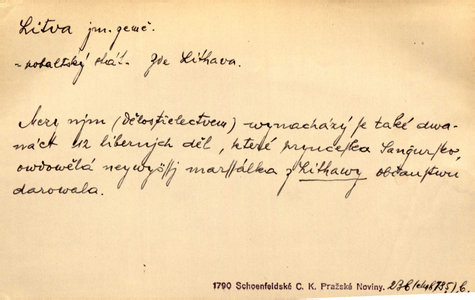 Litva jm. země.
- pobaltský stát - Zde Lithava.
Mezy njm (Dělostřelectvem) wynacházý se také dwa-
náct 12 liberných děl, které prynceska Sangusko,
owdowělá neywyšssj marssálka z Lithawy občanstwu
darowala.
1790 Schoenfeldské C. K. Pražské Noviny. 236